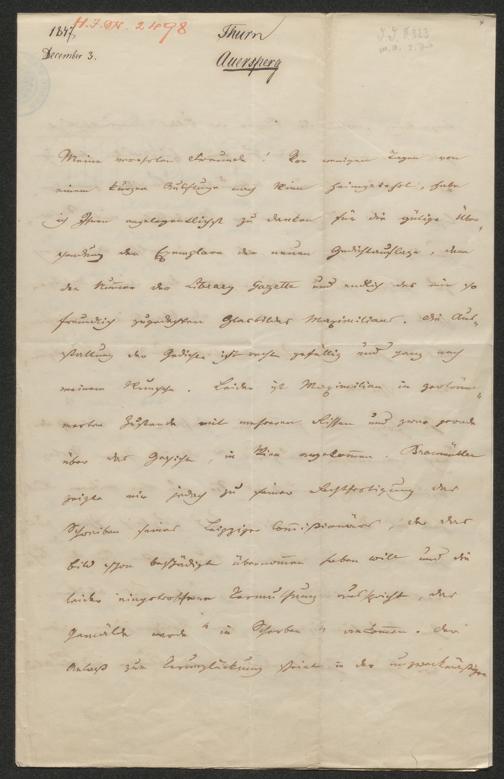 1847,
H.I.N. 2498
December 3.
Thurn
Auersperg
Meine verehrten Freunde! Vor wenigen Tagen von
einem kurzen Ausfluge nach Wien heimgekehrt, habe
ich Ihnen angelegentlichst zu danken für die gütige Über-
sendung der Exemplare der neuen Gedichtauflage, dann
der Nummer der Literary Gazette und endlich des mir so
freundlich zugedachten Glasbildes Maximilians. Die Aus-
stattung der Gedichte ist recht gefällig und ganz nach
meinem Wunsche. Leider ist Maximilian in
Zustande mit mehreren Rissen und zwar gerade
über das Gesicht, in Wien angekommen. Braumüller
zeigte mir jedoch zu seiner Rechtfertigung das
Schreiben seines Leipziger Commissionärs, der das
Bild schon beschädigt übernommen haben will und die
leider eingetroffene Vermuthung ausspricht, das
Gemälde werde "in Scherben" ankommen. Der
Anlaß zur Verunglückung scheint in der unzweckmäßigen